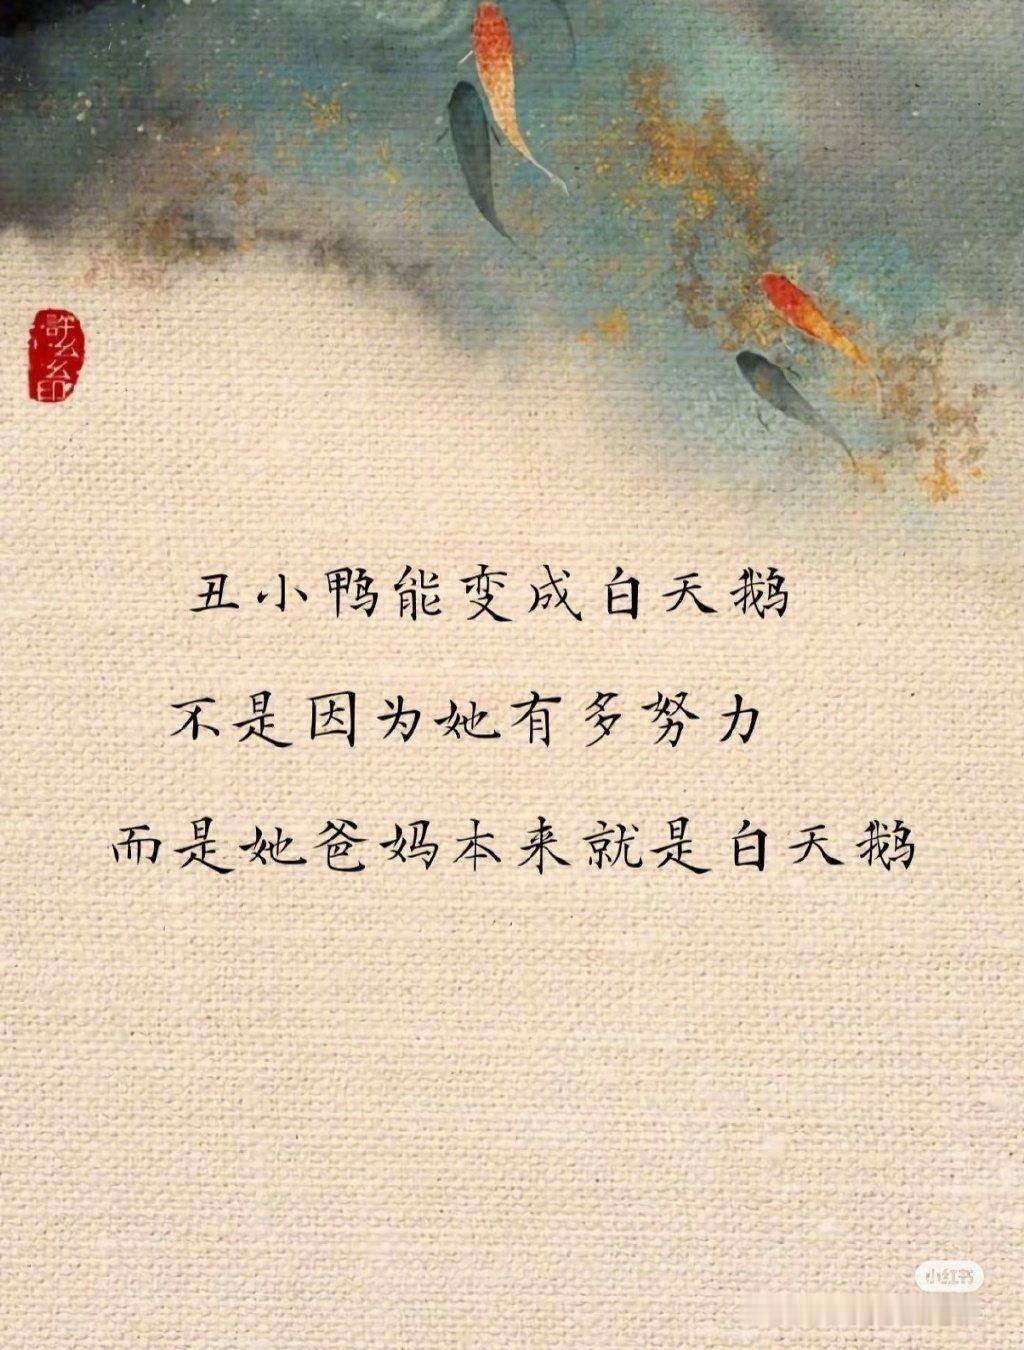 丑小鸭能变成白天鹅
不是因为她有多努力
而是她爸妈本来就是白天鹅
小红书